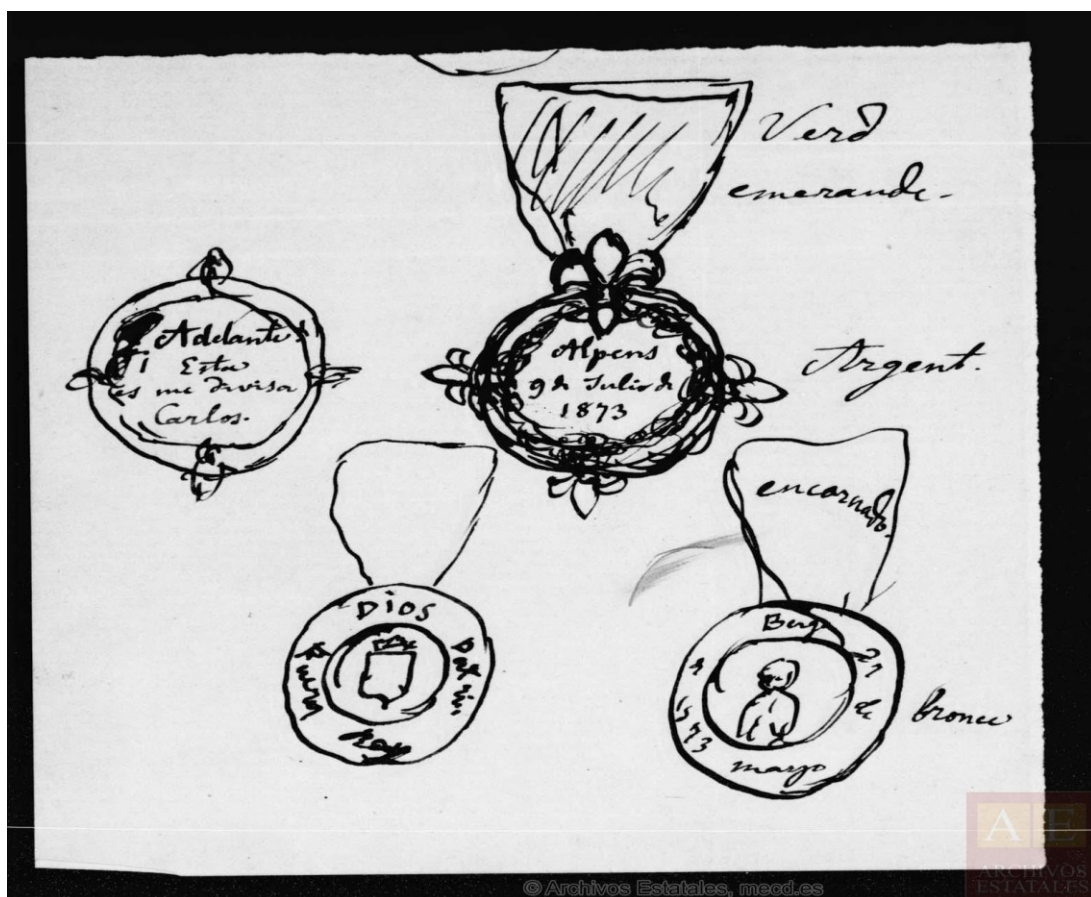 Verd
emeraude.
Adelante
Esta
es mi divisa
Carlos.
Alpens
9 de Julio de
1873
Argent.
encarnado.
Dios
Patria
Rey
Fueros
Berga
27
de
mayo
1873
bronce
AE
ARCHIVOS
ESTATALES
© Archivos Estatales, mecd.es